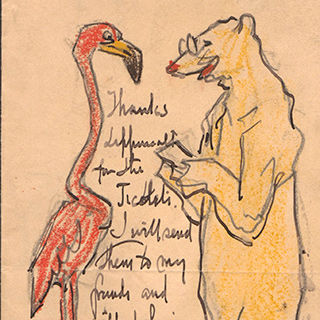 Thanks
for the
Tickets.
I will send
them to my
friends and